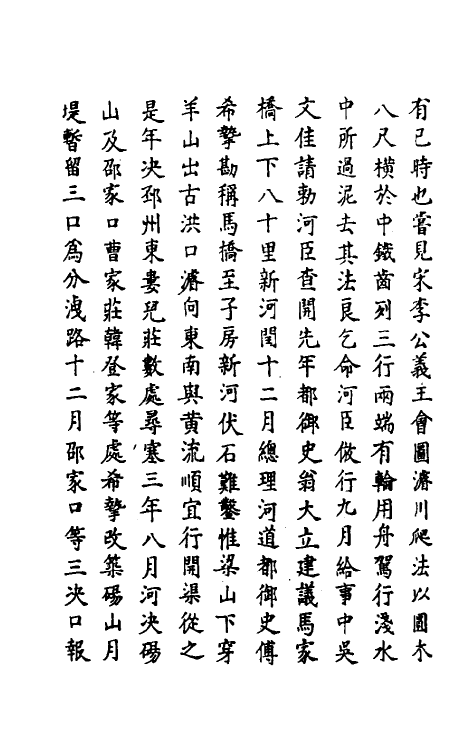 有已時也嘗見宋李公義王會圖濬川爬法以圓木
八尺横於中鐵齒列三行兩端有輪用舟駕行淺水
中所過泥去其法良乞命河臣倣行九月給事中吳
文佳請勅河臣查開先年都御史翁大立建議馬家
橋上下八十里新河閏十二月總理河道都御史傅
希摯勘稱馬橋至子房新河伏石難鑿惟梁山下穿
羊山出古洪口濬向東南與黄流順宜行開渠從之
是年决邳州東婁兒莊數處尋塞三年八月河决碭
山及邵家口曹家莊韓登家等處希摯改築碭山月
堤暫留三口爲分洩路十二月邵家口等三决口報